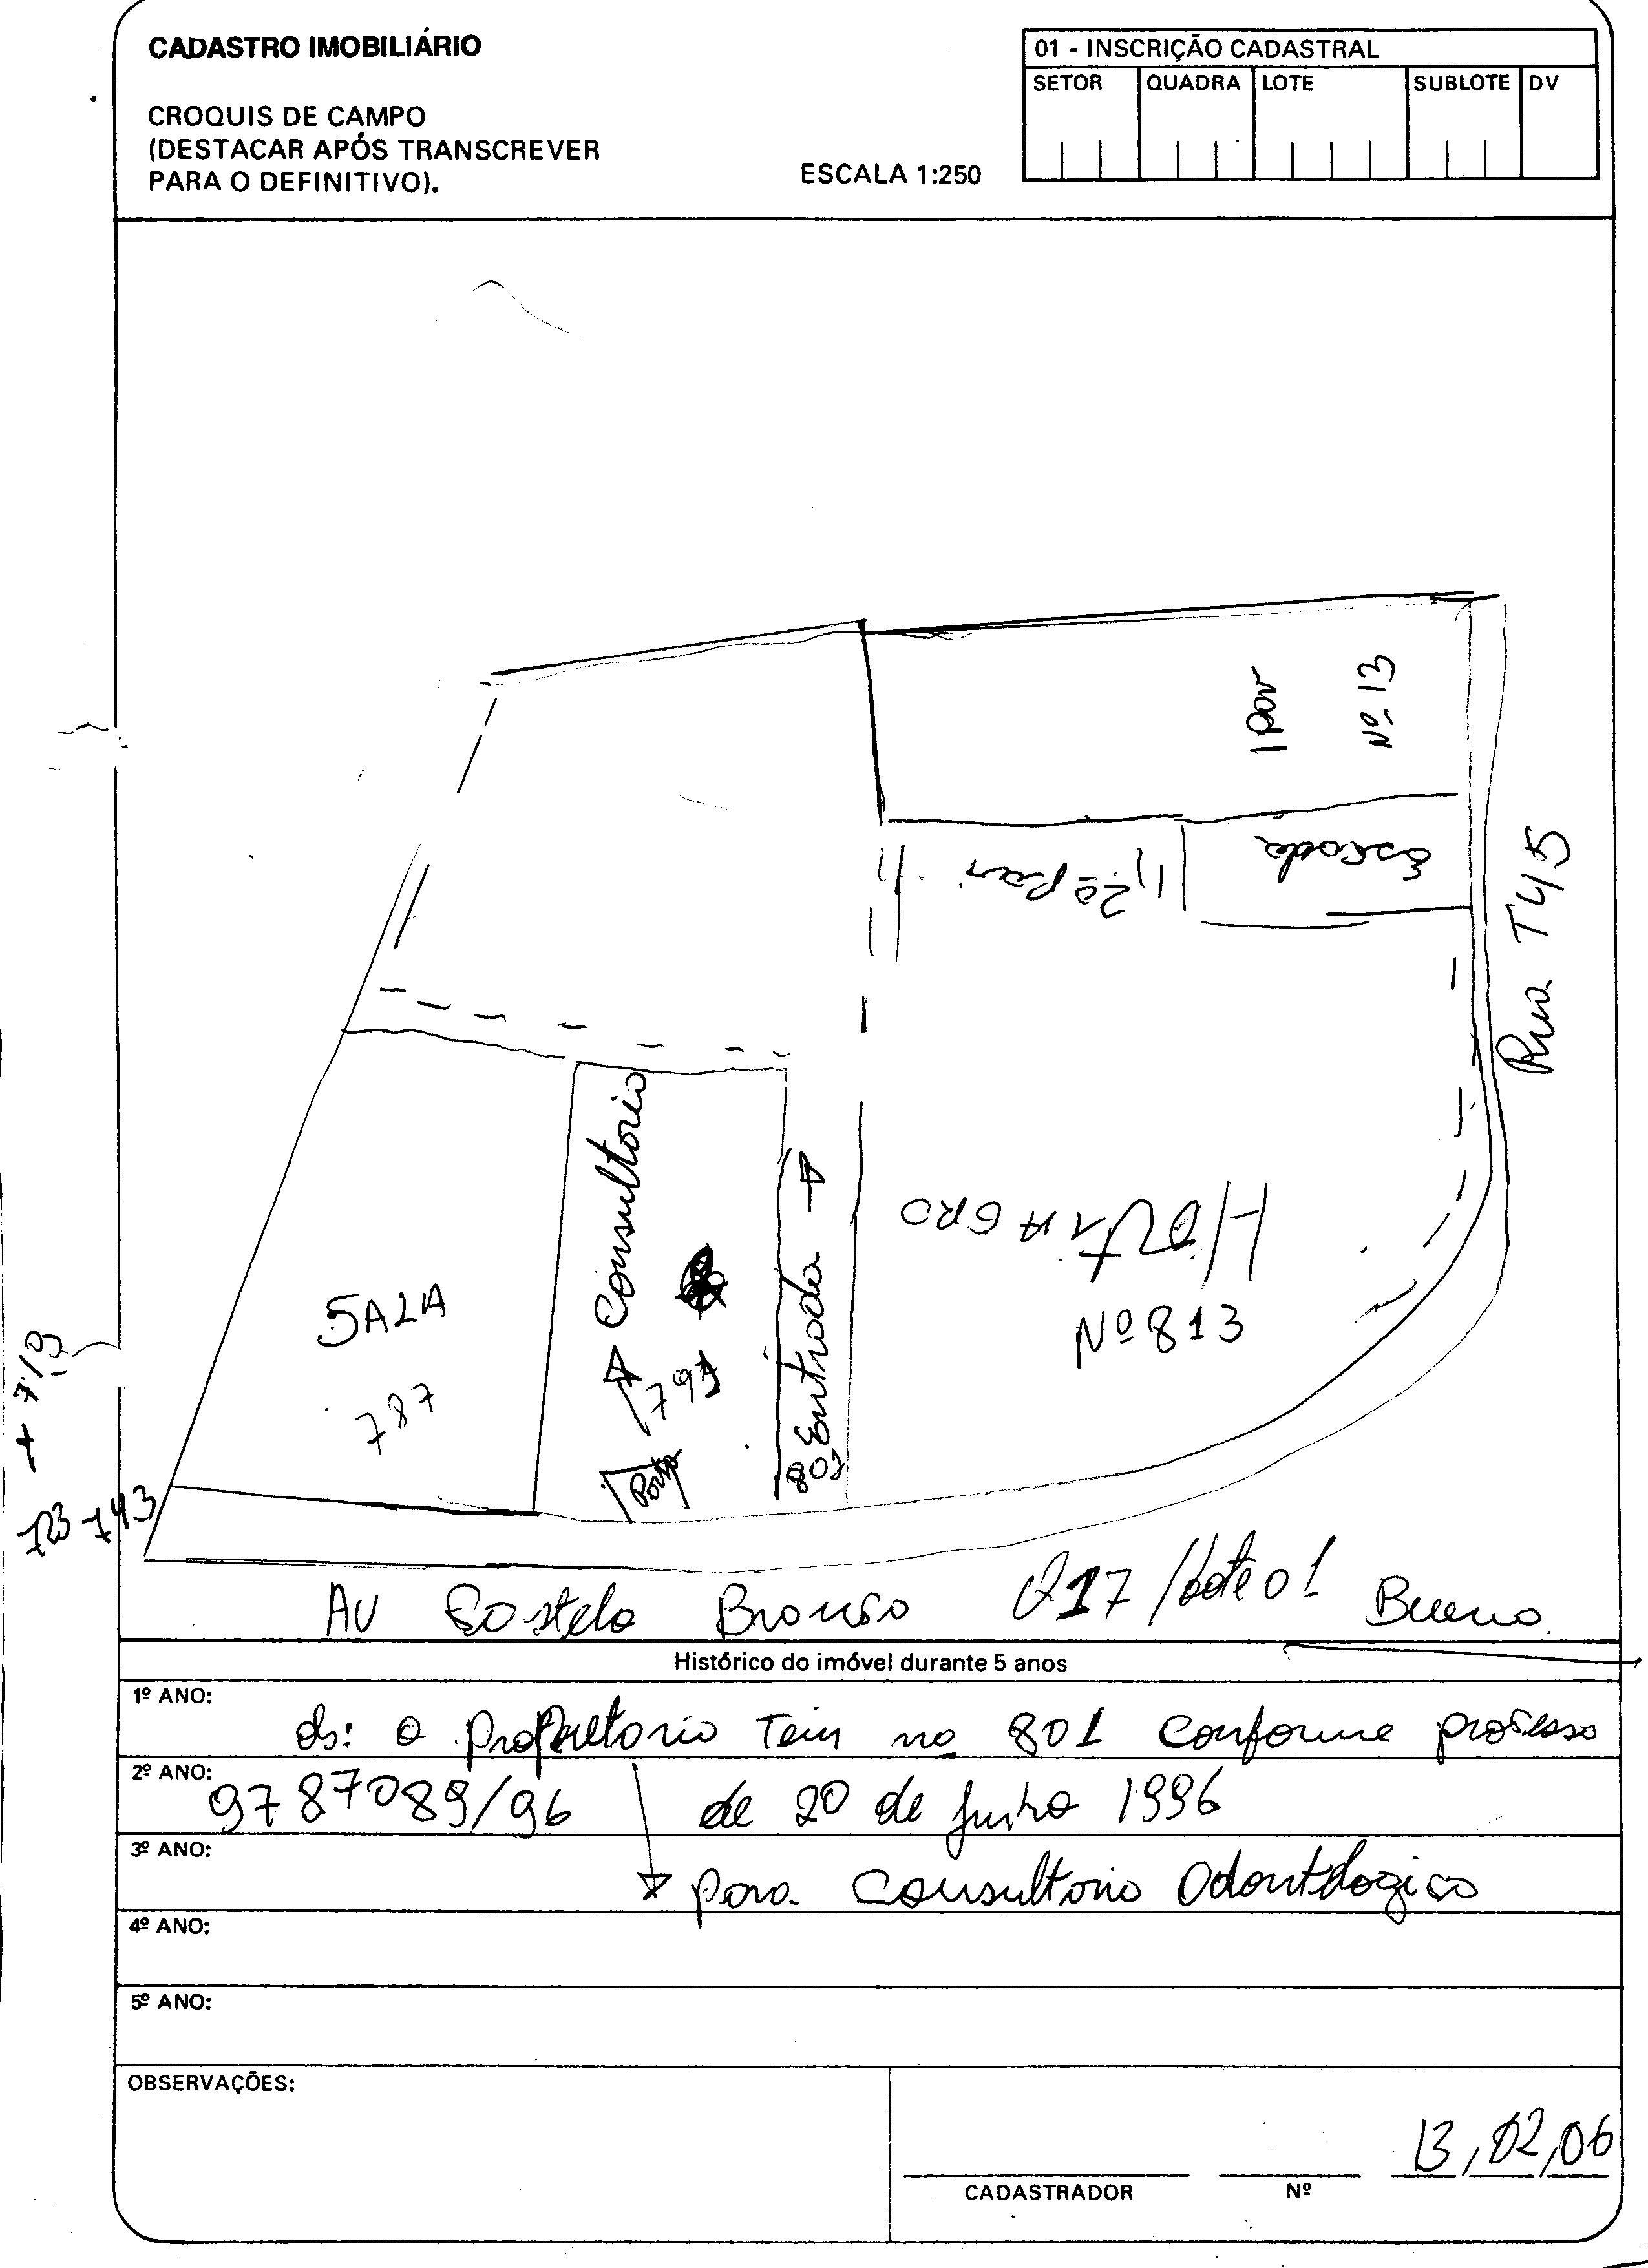 CADASTRO IMOBILIÁRIO
CROQUIS DE CAMPO
(DESTACAR APÓS TRANSCREVER
PARA O DEFINITIVO).
ESCALA 1:250
01 - INSCRIÇÃO CADASTRAL
SETOR QUADRA LOTE SUBLOTE DV
1 pav
Nº 13
Escada
1,2º pav
Rua T45
Consultorio
Entrada
801
HORTIAGRO
Nº 813
SALA
787
793
Porta
+ 719
723 - 743
Av Castelo Branco Q17/Lote 01 Bueno
Histórico do imóvel durante 5 anos
1º ANO:
ds: o Proprietario Tem no 801 Conforme processo
2º ANO:
9787089/96 de 20 de Junho 1996
3º ANO:
para Consultorio Odontologico
4º ANO:
5º ANO:
OBSERVAÇÕES:
13,02,06
CADASTRADOR Nº